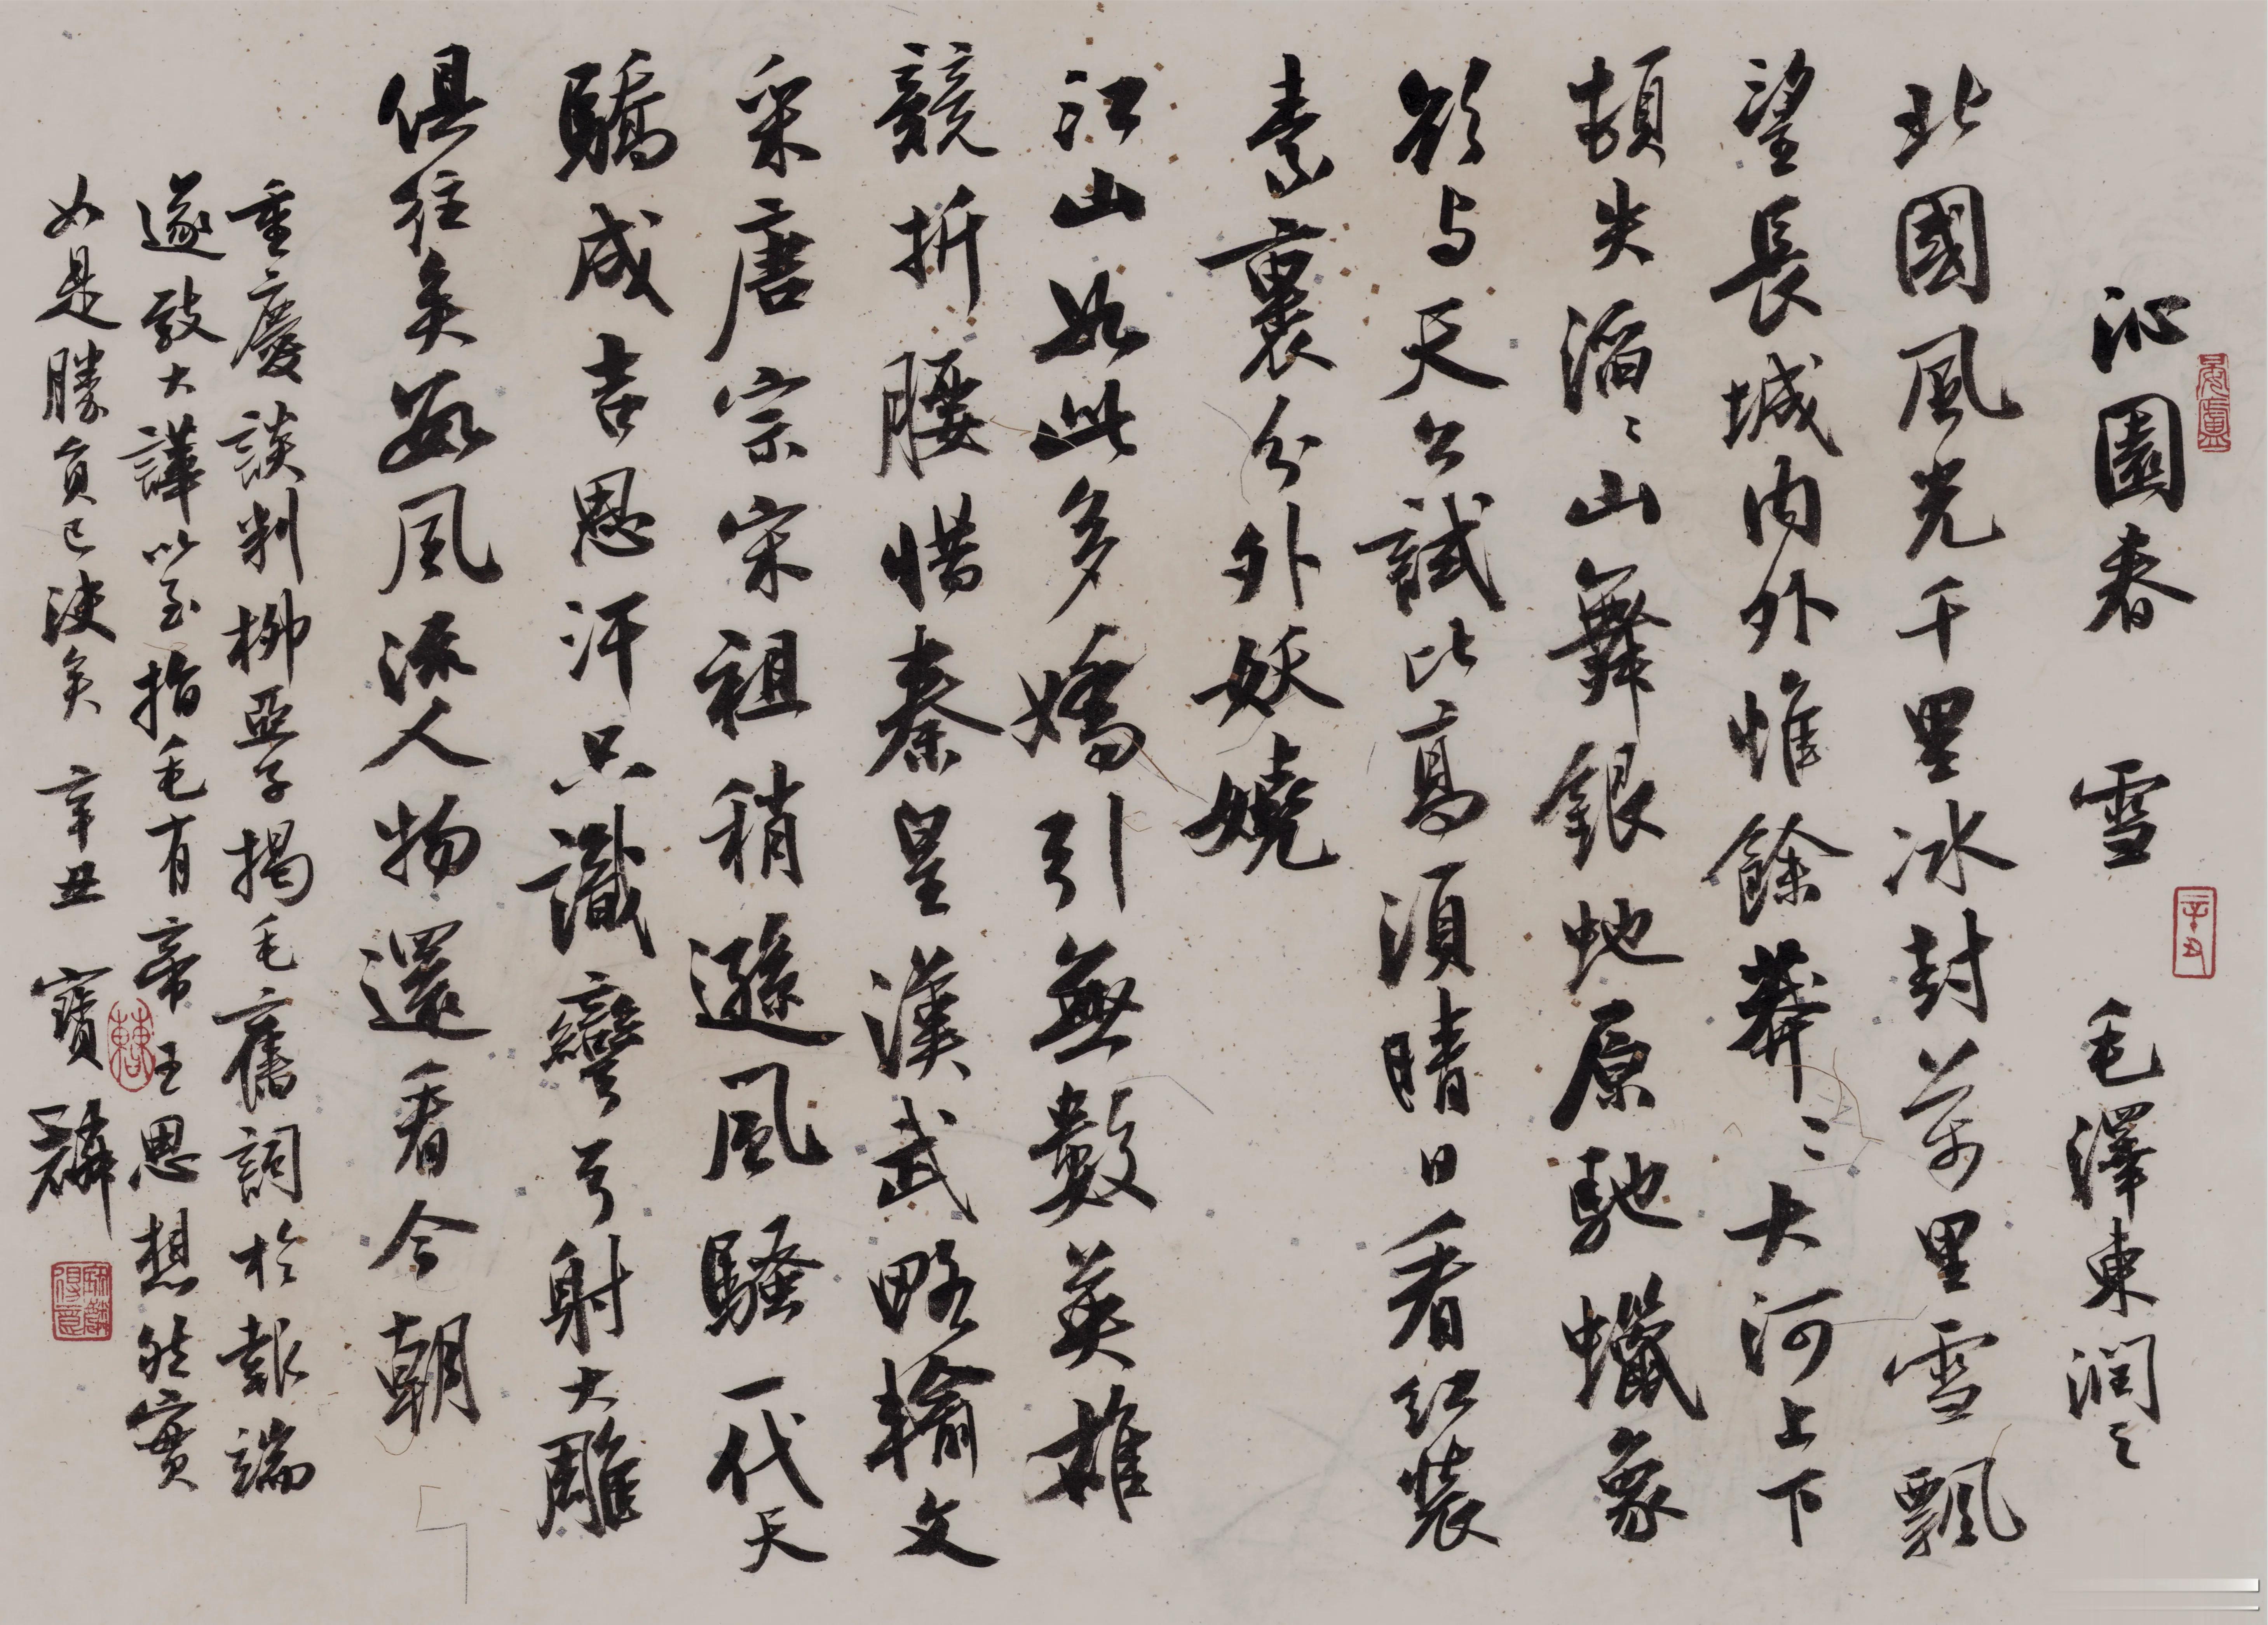 沁園春 雪 毛澤東潤之
辛丑
北國風光千里冰封萬里雪飄
望長城内外惟餘莽〻大河上下
頓失滔〻山舞銀蛇原馳蠟象
欲与天公試比高須晴日看紅裝
素裹分外妖嬈
江山如此多嬌引無數英雄
競折腰惜秦皇漢武略輸文
采唐宗宋祖稍遜風騷一代天
驕成吉思汗只識彎弓射大雕
俱往矣數風流人物還看今朝
重慶談判柳亞子揭毛舊詞於報端
遂致大譁以至指毛有帝王思想然實
如是勝負已決矣 辛丑 寶麟